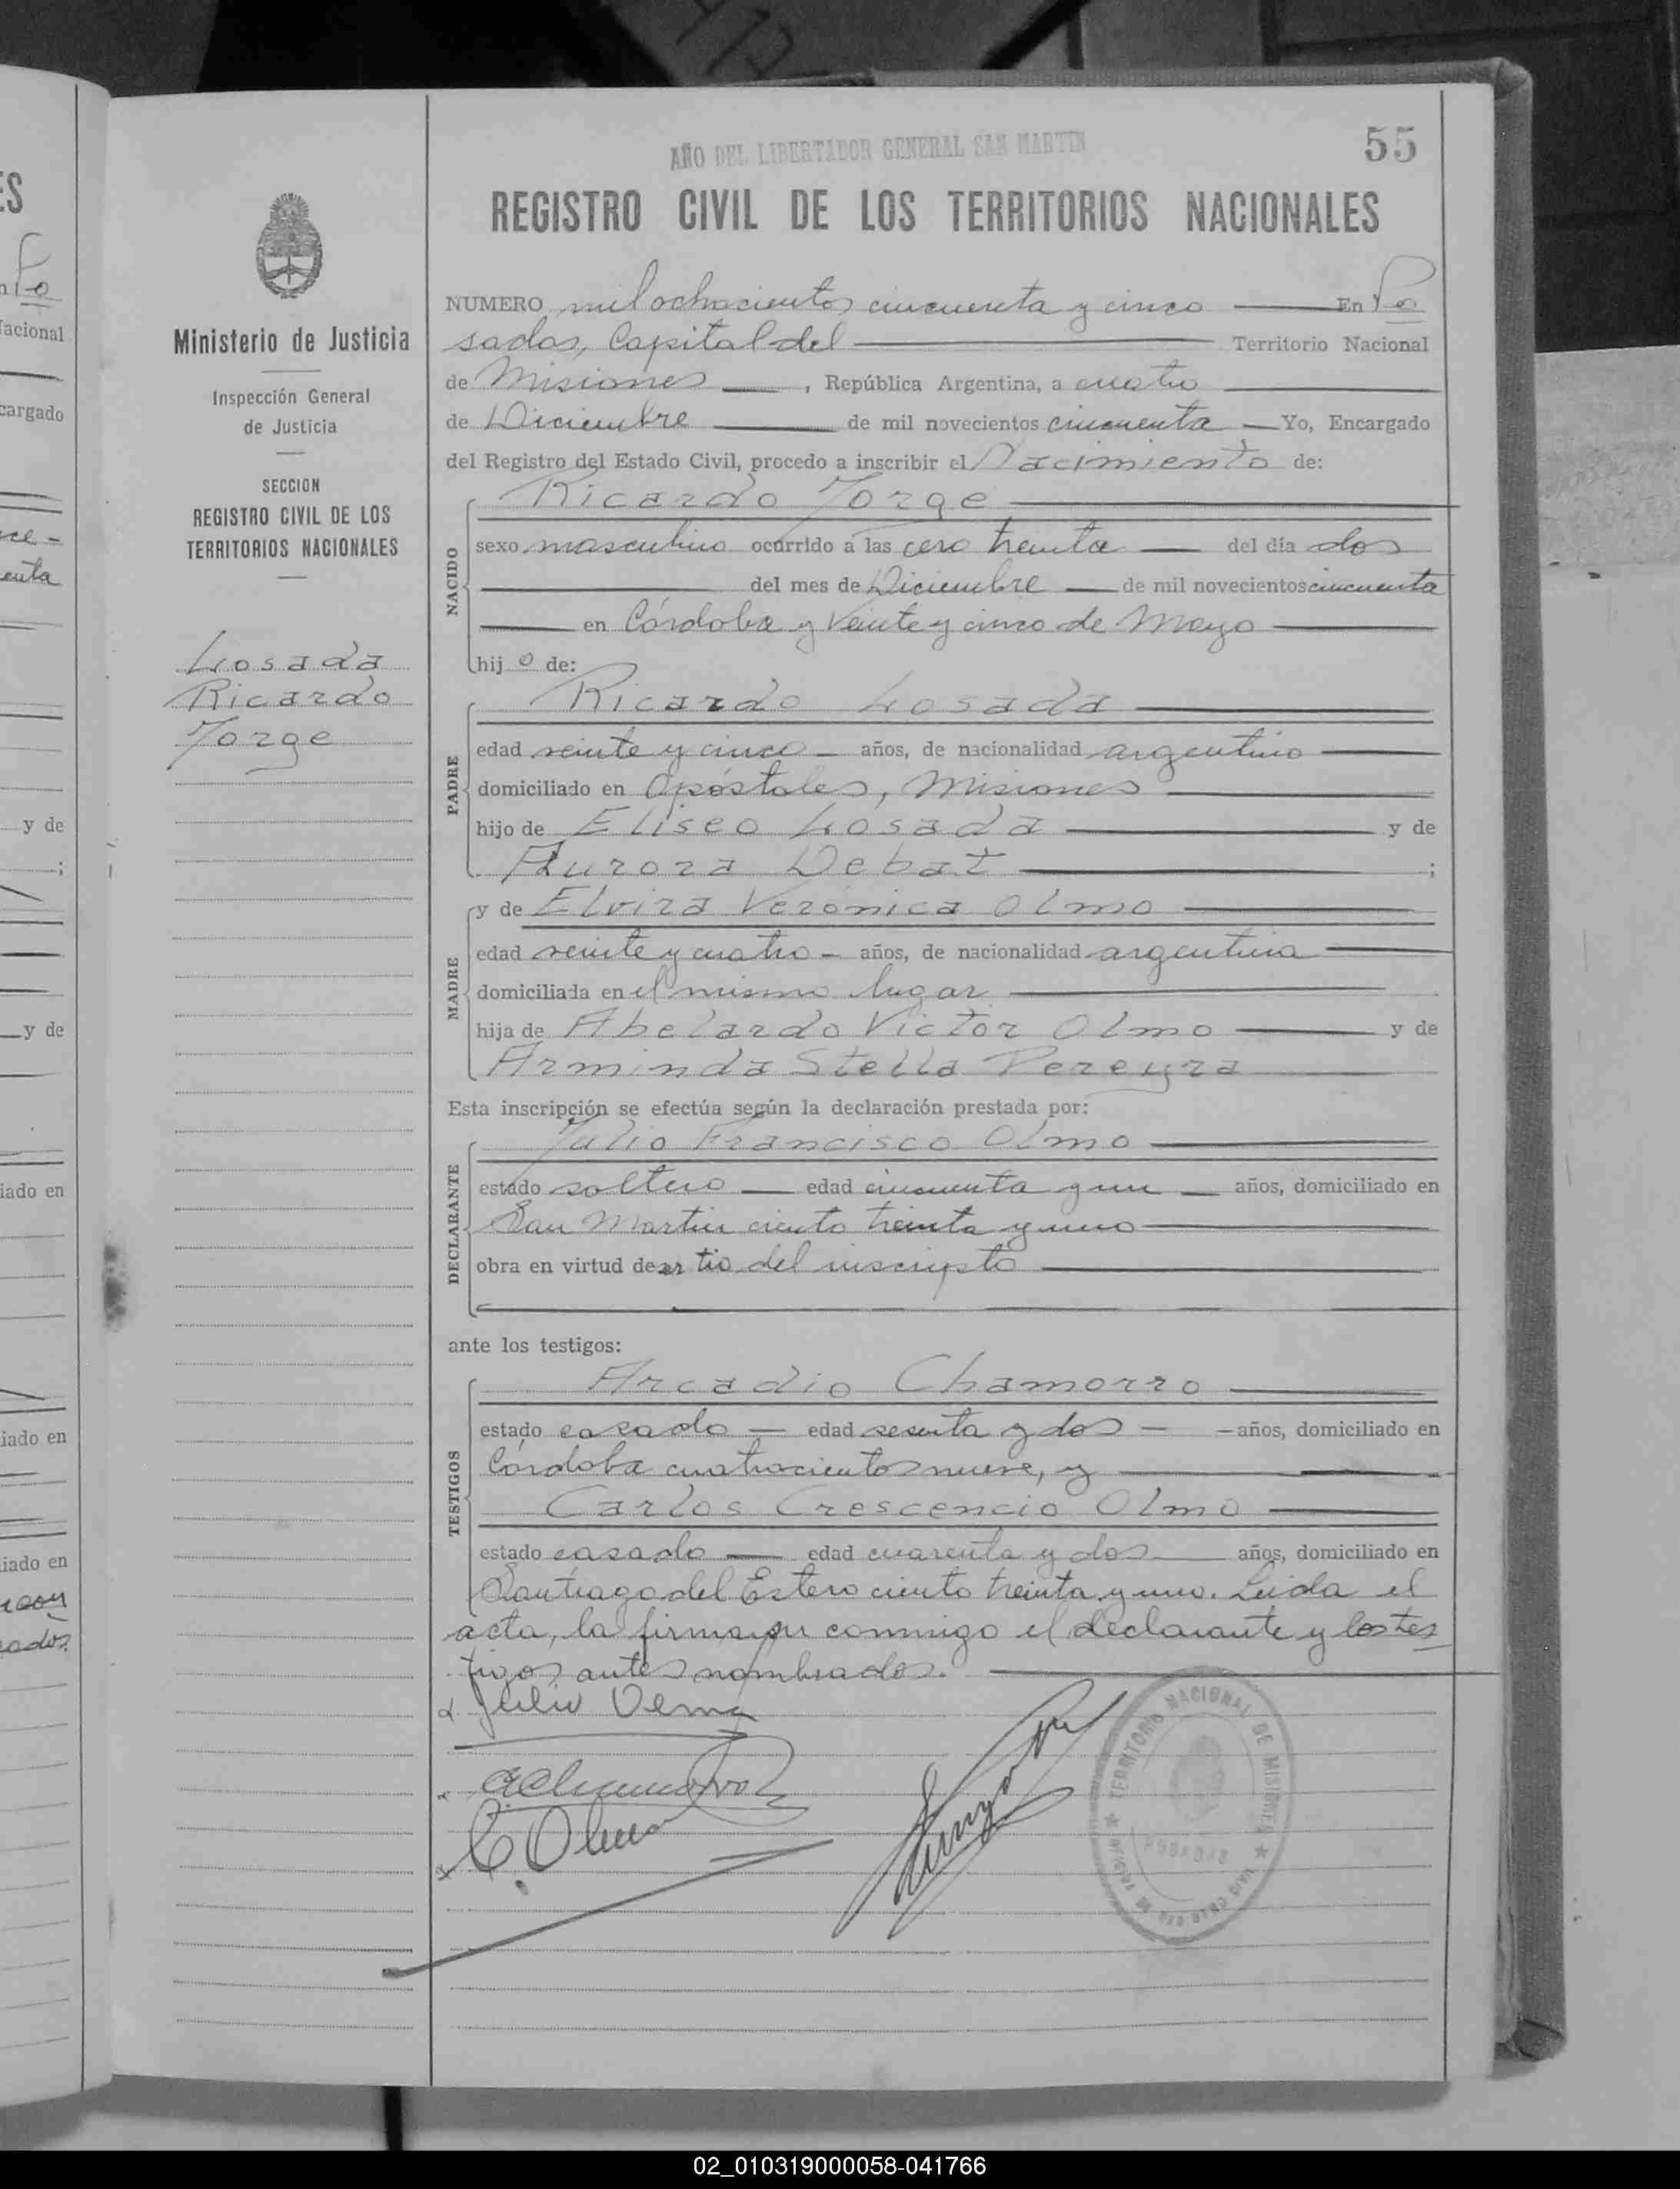 55
AÑO DEL LIBERTADOR GENERAL SAN MARTIN
REGISTRO CIVIL DE LOS TERRITORIOS NACIONALES
Ministerio de Justicia
Inspección General
de Justicia
SECCION
REGISTRO CIVIL DE LOS
TERRITORIOS NACIONALES
Losada
Ricardo
Jorge
NUMERO mil ochocientos cincuenta y cinco En Po
sadas, Capital del Territorio Nacional
de Misiones, República Argentina, a cuatro
de Diciembre de mil novecientos cincuenta Yo, Encargado
del Registro del Estado Civil, procedo a inscribir el Nacimiento de:
Ricardo Jorge
NACIDO
sexo masculino ocurrido a las cero treinta del día dos
del mes de Diciembre de mil novecientos cincuenta
en Córdoba y Veinte y cinco de Mayo
hijo de:
Ricardo Losada
PADRE
edad veinte y cinco años, de nacionalidad argentino
domiciliado en Apóstoles, Misiones
hijo de Eliseo Losada y de
Aurora Debat ;
y de Elvira Verónica Olmo
MADRE
edad veinte y cuatro años, de nacionalidad argentina
domiciliada en el mismo lugar
hija de Abelardo Victor Olmo y de
Arminda Stella Pereyra
Esta inscripción se efectúa según la declaración prestada por:
Julio Francisco Olmo
DECLARANTE
estado soltero edad cincuenta y un años, domiciliado en
San Martin ciento treinta y uno
obra en virtud de ser tio del inscripto
ante los testigos:
Arcadio Chamorro
TESTIGOS
estado casado edad sesenta y dos años, domiciliado en
Córdoba cuatrocientos nueve, y
Carlos Crescencio Olmo
estado casado edad cuarenta y dos años, domiciliado en
Santiago del Estero ciento treinta y uno. Leida el
acta, la firman conmigo el declarante y los tes
tigos antes nombrados.
Julio Olmo
AChamorro
C. Olmo
TERRITORIO NACIONAL DE MISIONES
POSADAS
02_010319000058-041766